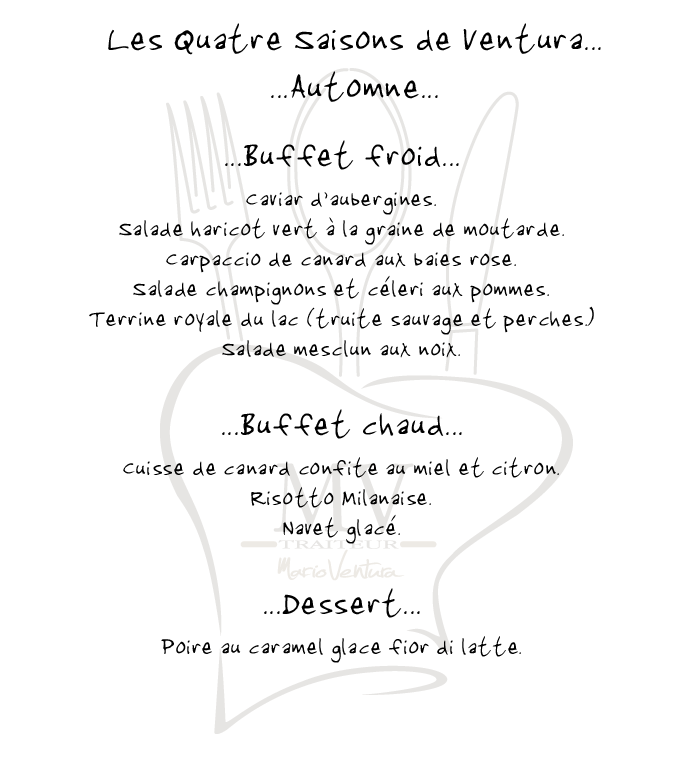 Les Quatre Saisons de Ventura...
...Automne...
...Buffet froid...
Caviar d'aubergines.
Salade haricot vert à la graine de moutarde.
Carpaccio de canard aux baies rose.
Salade champignons et céleri aux pommes.
Terrine royale du lac (truite sauvage et perches.)
Salade mesclun aux noix.
...Buffet chaud...
Cuisse de canard confite au miel et citron.
Risotto Milanaise.
Navet glacé.
MV
TRAITEUR
Mario Ventura
...Dessert...
Poire au caramel glace fior di latte.